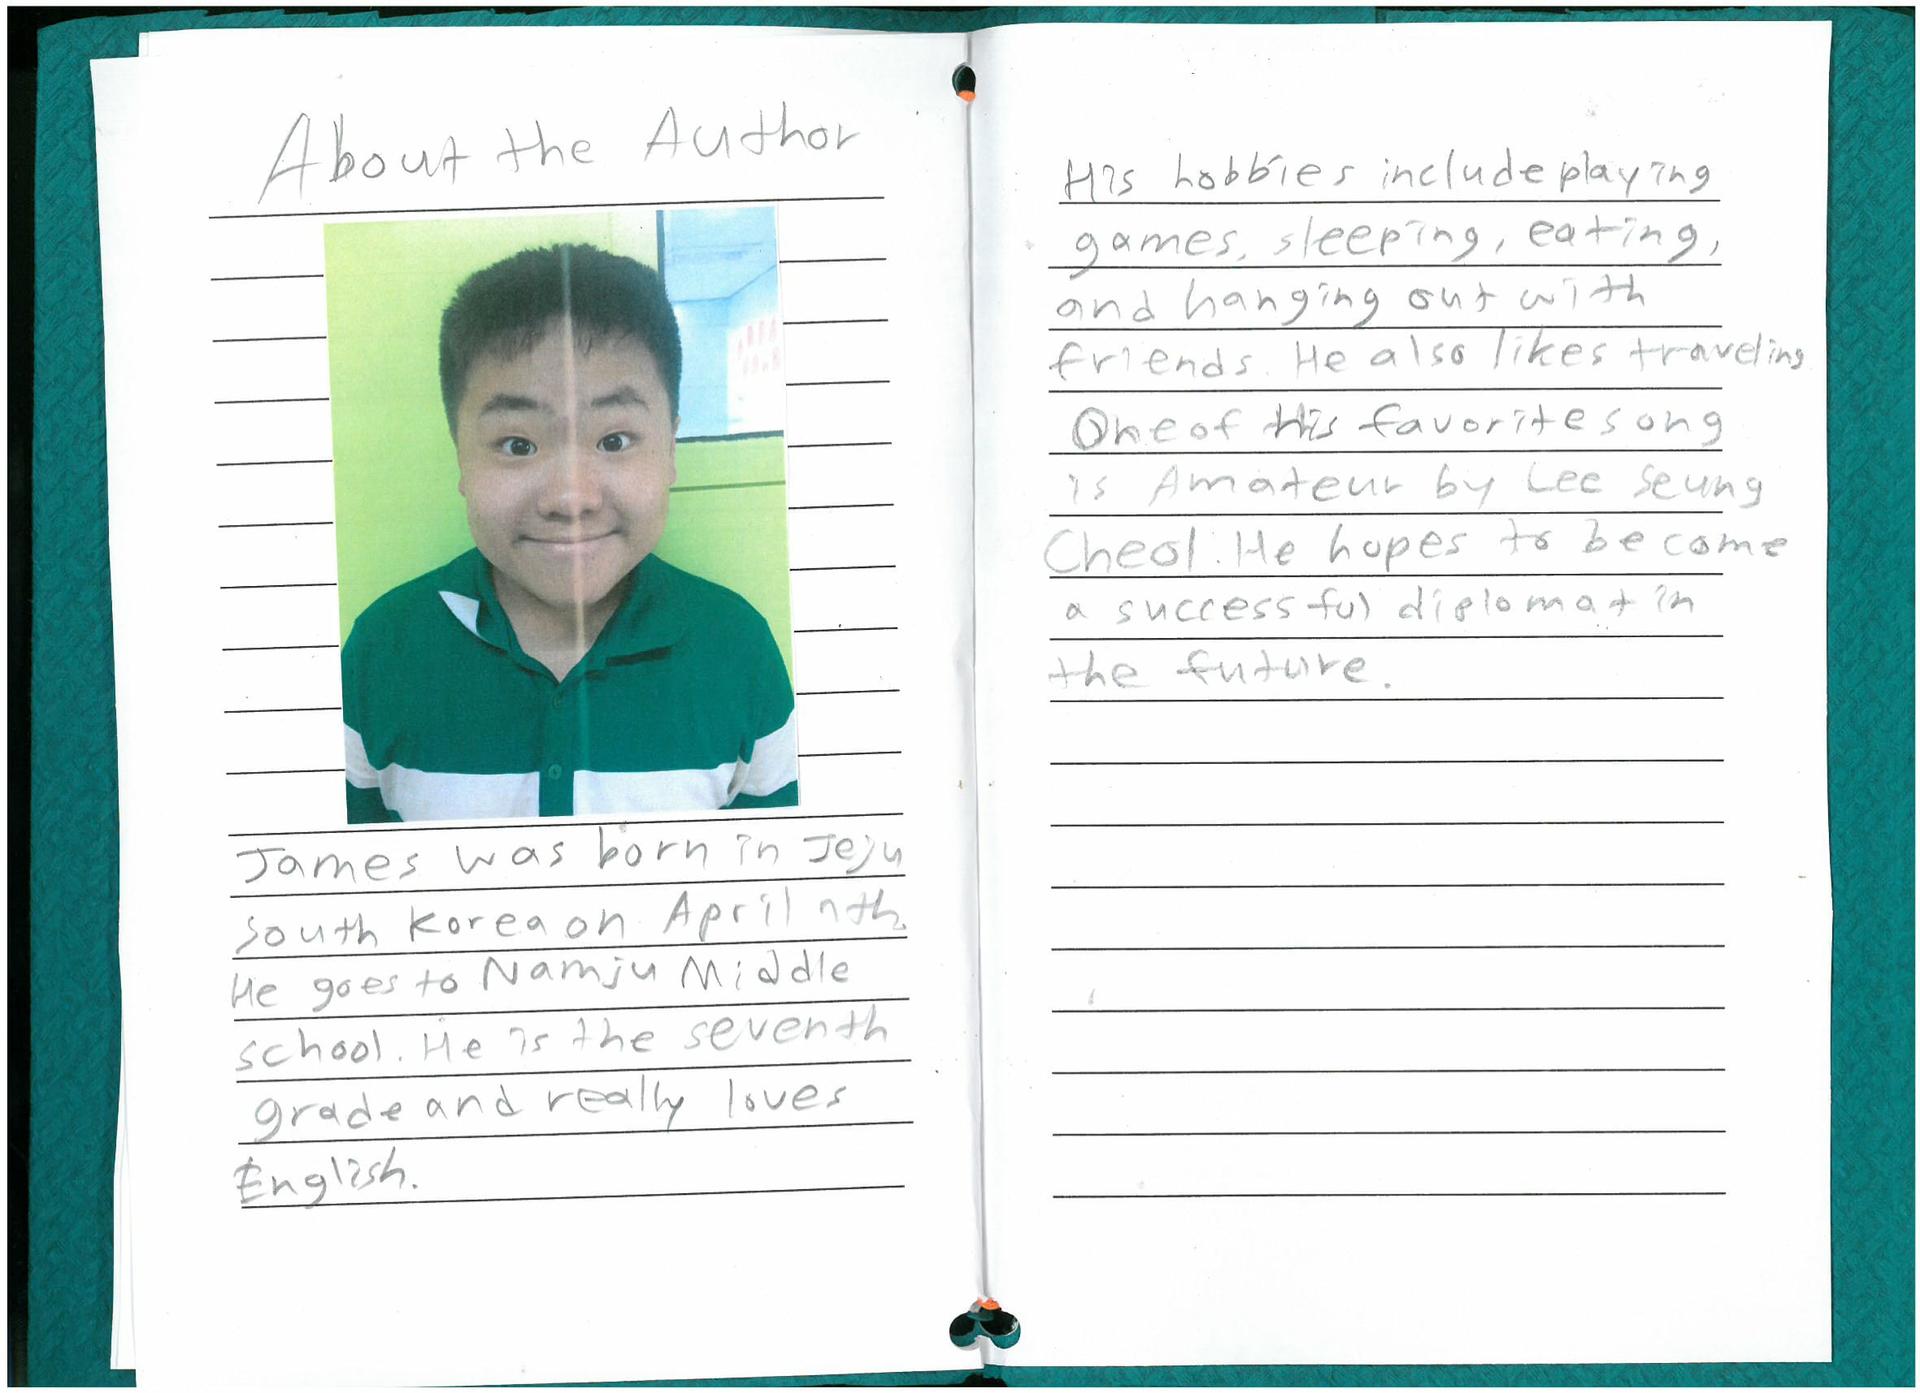 About the Author
James was born in Jeju
South Korea on April
He goes to Namju Middle
school. He is the seventh
grade and really loves
English.
His hobbies include playing
games, sleeping, eating,
and hanging out with
friends. He also likes traveling
One of His favorite song
is Amateur by Lee Seung
Cheol. He hopes to become
a successful diplomat in
the future.